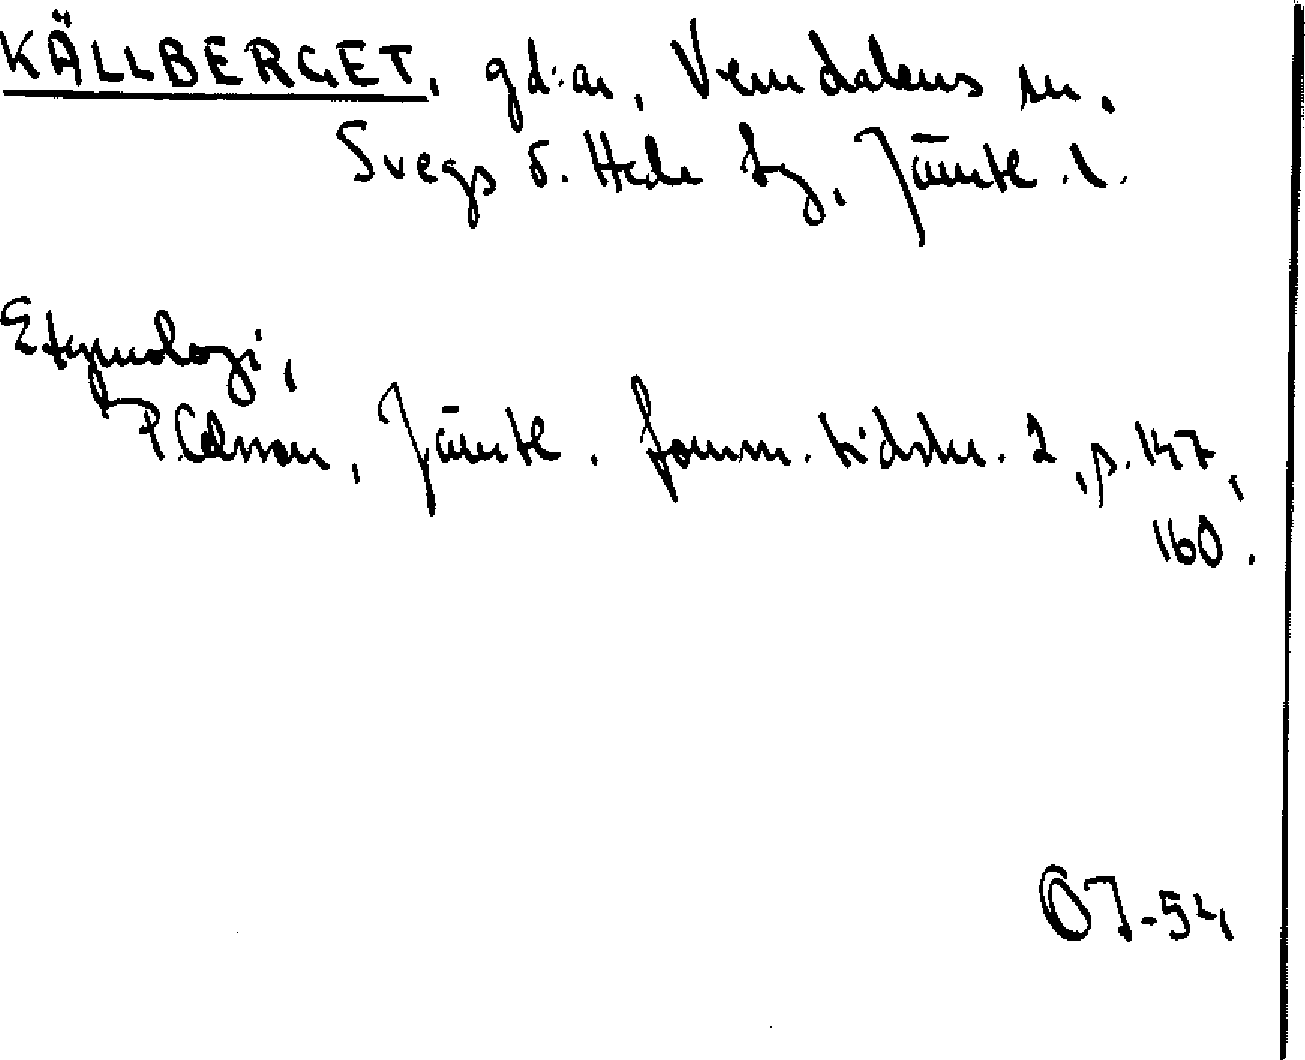 KÄLLBERGET, gd:ar, Vemdalens sn,
Svegs o. Hede tg, Jämtl. l.
Etymologi,
P Olsson, Jämtl. fornm. tidskr. 2, p. 147,
160.
OJ-54